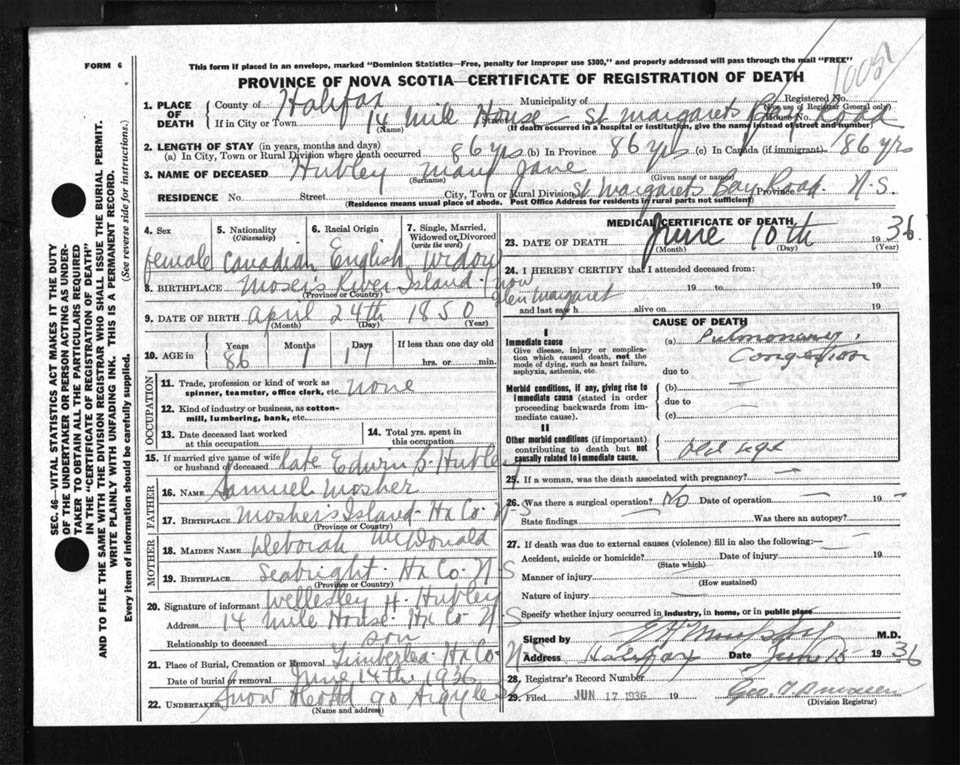 FORM 6
This form if placed in an envelope, marked "Dominion Statistics—Free, penalty for improper use $300," and properly addressed will pass through the mail "FREE"
PROVINCE OF NOVA SCOTIA—CERTIFICATE OF REGISTRATION OF DEATH
1. PLACE OF DEATH
County of Halifax Municipality of Registered No.
(For use of Registrar General only)
If in City or Town 14 Mile House Street St Margarets Bay Road House No.
(Name) (If death occurred in a hospital or institution, give the name instead of street and number)
2. LENGTH OF STAY (in years, months and days)
(a) In City, Town or Rural Division where death occurred 86 yrs (b) In Province 86 yrs (c) In Canada (if immigrant) 86 yrs
3. NAME OF DECEASED Hubley Mary Jane
(Surname) (Given name or names)
RESIDENCE No. Street City, Town or Rural Division St Margarets Bay Road Province N.S.
(Residence means usual place of abode. Post Office Address for residents in rural parts not sufficient)
4. Sex 5. Nationality (Citizenship) 6. Racial Origin 7. Single, Married, Widowed or Divorced (write the word)
female Canadian English Widow
8. BIRTHPLACE Mosers River Island (now
(Province or Country) Glen Margaret
9. DATE OF BIRTH April 24th 1850
(Month) (Day) (Year)
10. AGE in Years Months Days If less than one day old
86 1 hrs. or min.
OCCUPATION
11. Trade, profession or kind of work as spinner, teamster, office clerk, etc. none
12. Kind of industry or business, as cotton-mill, lumbering, bank, etc.
13. Date deceased last worked at this occupation
14. Total yrs. spent in this occupation
15. If married give name of wife or husband of deceased late Edwin S. Hubley
FATHER
16. NAME Samuel Mosher
17. BIRTHPLACE Moshers Island Hx Co. N-S
(Province or Country)
MOTHER
18. MAIDEN NAME Deborah McDonald
19. BIRTHPLACE Seabright Hx Co. N S
(Province or Country)
20. Signature of informant Wellesley H. Hubley
Address 14 Mile House Hx Co N S
Relationship to deceased son
21. Place of Burial, Cremation or Removal Timberlea Hx Co N S
Date of burial or removal June 14th 1936
22. UNDERTAKER Snow 90 Argyle S
(Name and address)
MEDICAL CERTIFICATE OF DEATH
23. DATE OF DEATH June 10th 1936.
(Month) (Day) (Year)
24. I HEREBY CERTIFY that I attended deceased from:
19 to 19
and last saw h alive on 19
CAUSE OF DEATH
I
Immediate cause
Give disease, injury or complication which caused death, not the mode of dying, such as heart failure, asphyxia, asthenia, etc.
(a) Pulmonary Congestion
due to
Morbid conditions, if any, giving rise to immediate cause (stated in order proceeding backwards from immediate cause).
(b) —
due to —
(c)
II
Other morbid conditions (if important) contributing to death but not causally related to immediate cause.
old age
25. If a woman, was the death associated with pregnancy? —
26. (Was there a surgical operation? No Date of operation — 19 —
State findings — Was there an autopsy?
27. If death was due to external causes (violence) fill in also the following:—
Accident, suicide or homicide? Date of injury 19
(State which)
Manner of injury
(How sustained)
Nature of injury
Specify whether injury occurred in industry, in home, or in public place
Signed by M.D.
Address Halifax Date June 15 1936
28. Registrar's Record Number
29. Filed JUN 17 1936 19
(Division Registrar)
SEC. 46—VITAL STATISTICS ACT MAKES IT THE DUTY
OF THE UNDERTAKER OR PERSON ACTING AS UNDER-
TAKER TO OBTAIN ALL THE PARTICULARS REQUIRED
IN THE "CERTIFICATE OF REGISTRATION OF DEATH"
AND TO FILE THE SAME WITH THE DIVISION REGISTRAR WHO SHALL ISSUE THE BURIAL PERMIT.
WRITE PLAINLY WITH UNFADING INK. THIS IS A PERMANENT RECORD.
Every item of information should be carefully supplied. (See reverse side for instructions.)